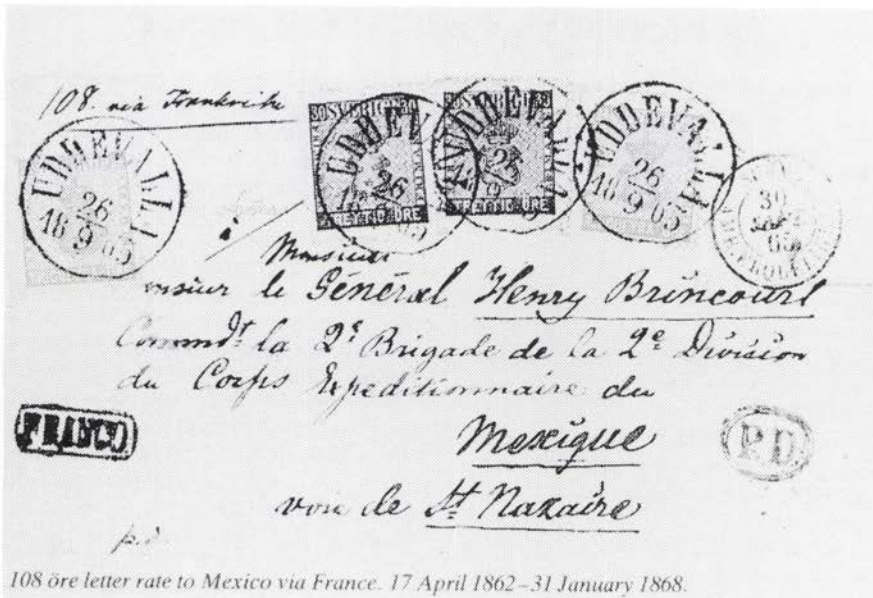 108. via Frankriche
UDDEVALLA
26
9
18 65
30 SVERIGE 30
TRETTIO ÖRE
UDDEV
26
18 65
30 SVERIGE 30
TRETTIO ÖRE
UDDEVALLA
UDDEVALLA
26
9
18 65
30
SEPT
65
à
Monsieur
Monsieur le Général Henry Brincourt
Commdt. la 2e Brigade de la 2e Division
du Corps Expeditionnaire du
Mexique
FRANCO
P.D
voie de St Nazaire
p.d.
108 öre letter rate to Mexico via France. 17 April 1862–31 January 1868.